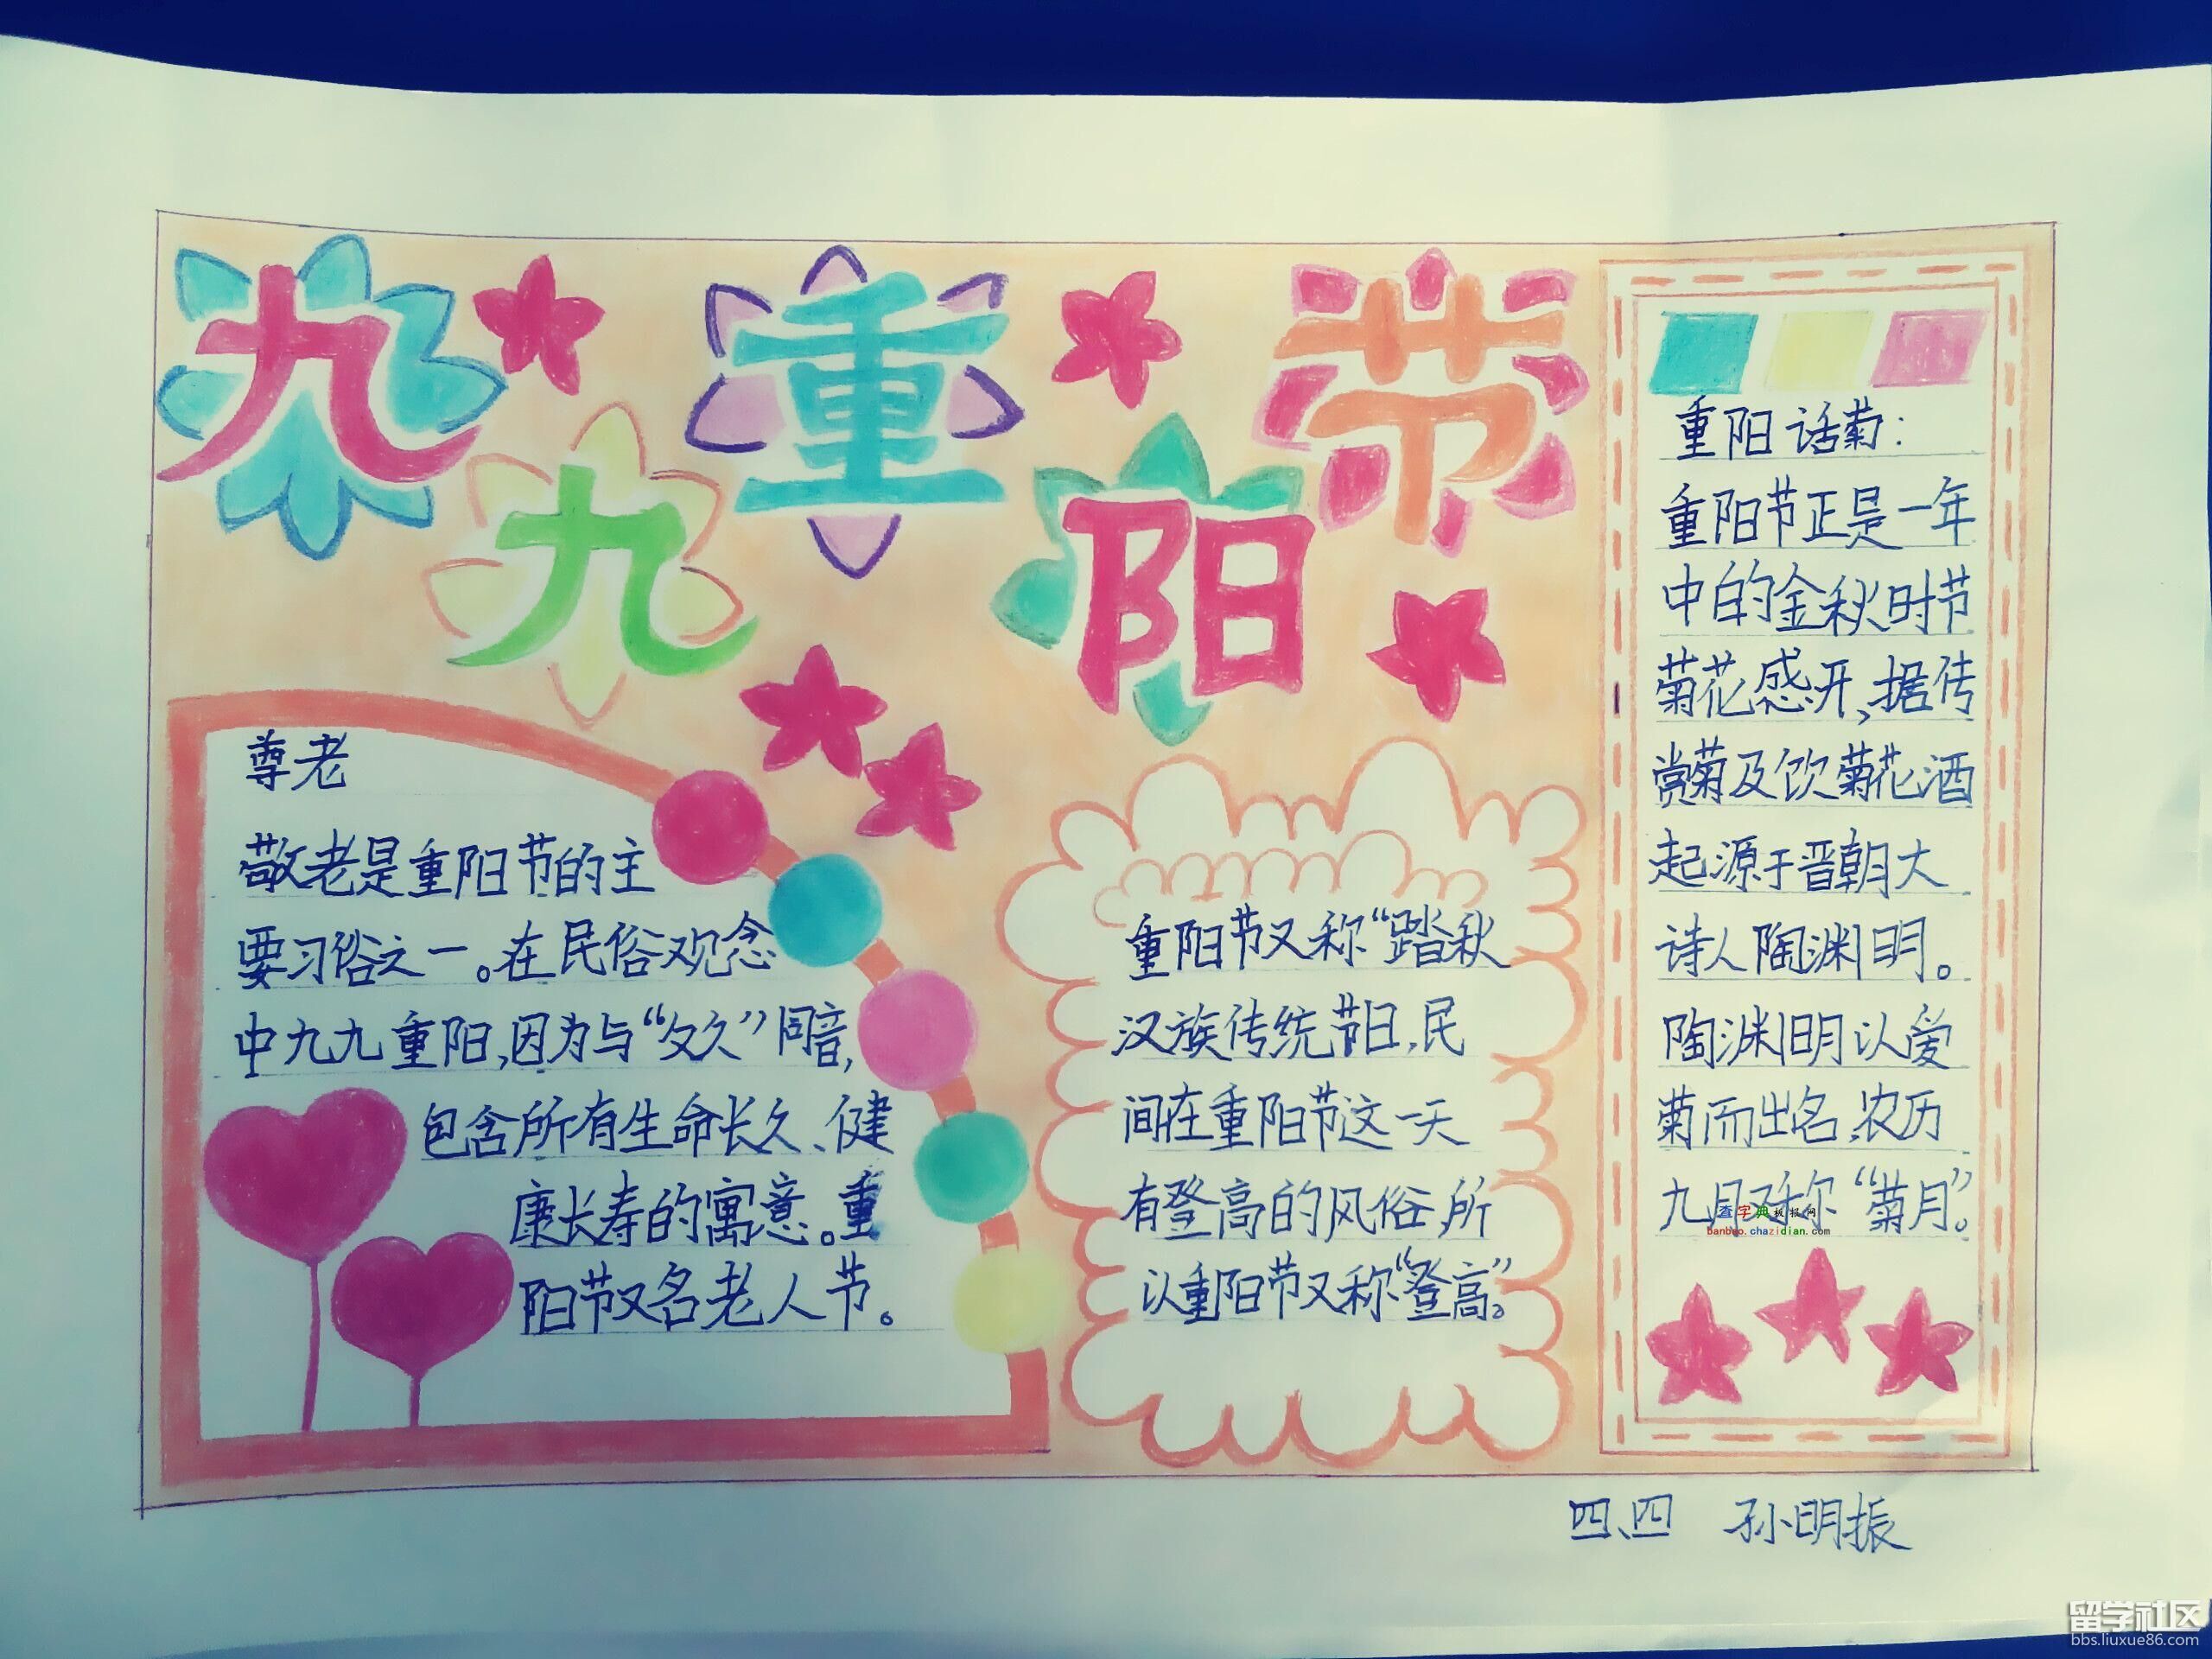 九九重阳节
尊老
敬老是重阳节的主
要习俗之一。在民俗观念
中九九重阳,因为与“久久”同音,
包含所有生命长久、健
康长寿的寓意。重
阳节又名老人节。
重阳节又称“踏秋
汉族传统节日,民
间在重阳节这一天
有登高的风俗,所
以重阳节又称“登高”。
重阳话菊:
重阳节正是一年
中的金秋时节
菊花感开、据传
赏菊及饮菊花酒
起源于晋朝大
诗人陶渊明。
陶渊明以爱
菊而出名,农历
九月又称“菊月”。
查字典板报网
banbao.chazidian.com
四、四 孙明振
留学社区
bbs.liuxue86.com